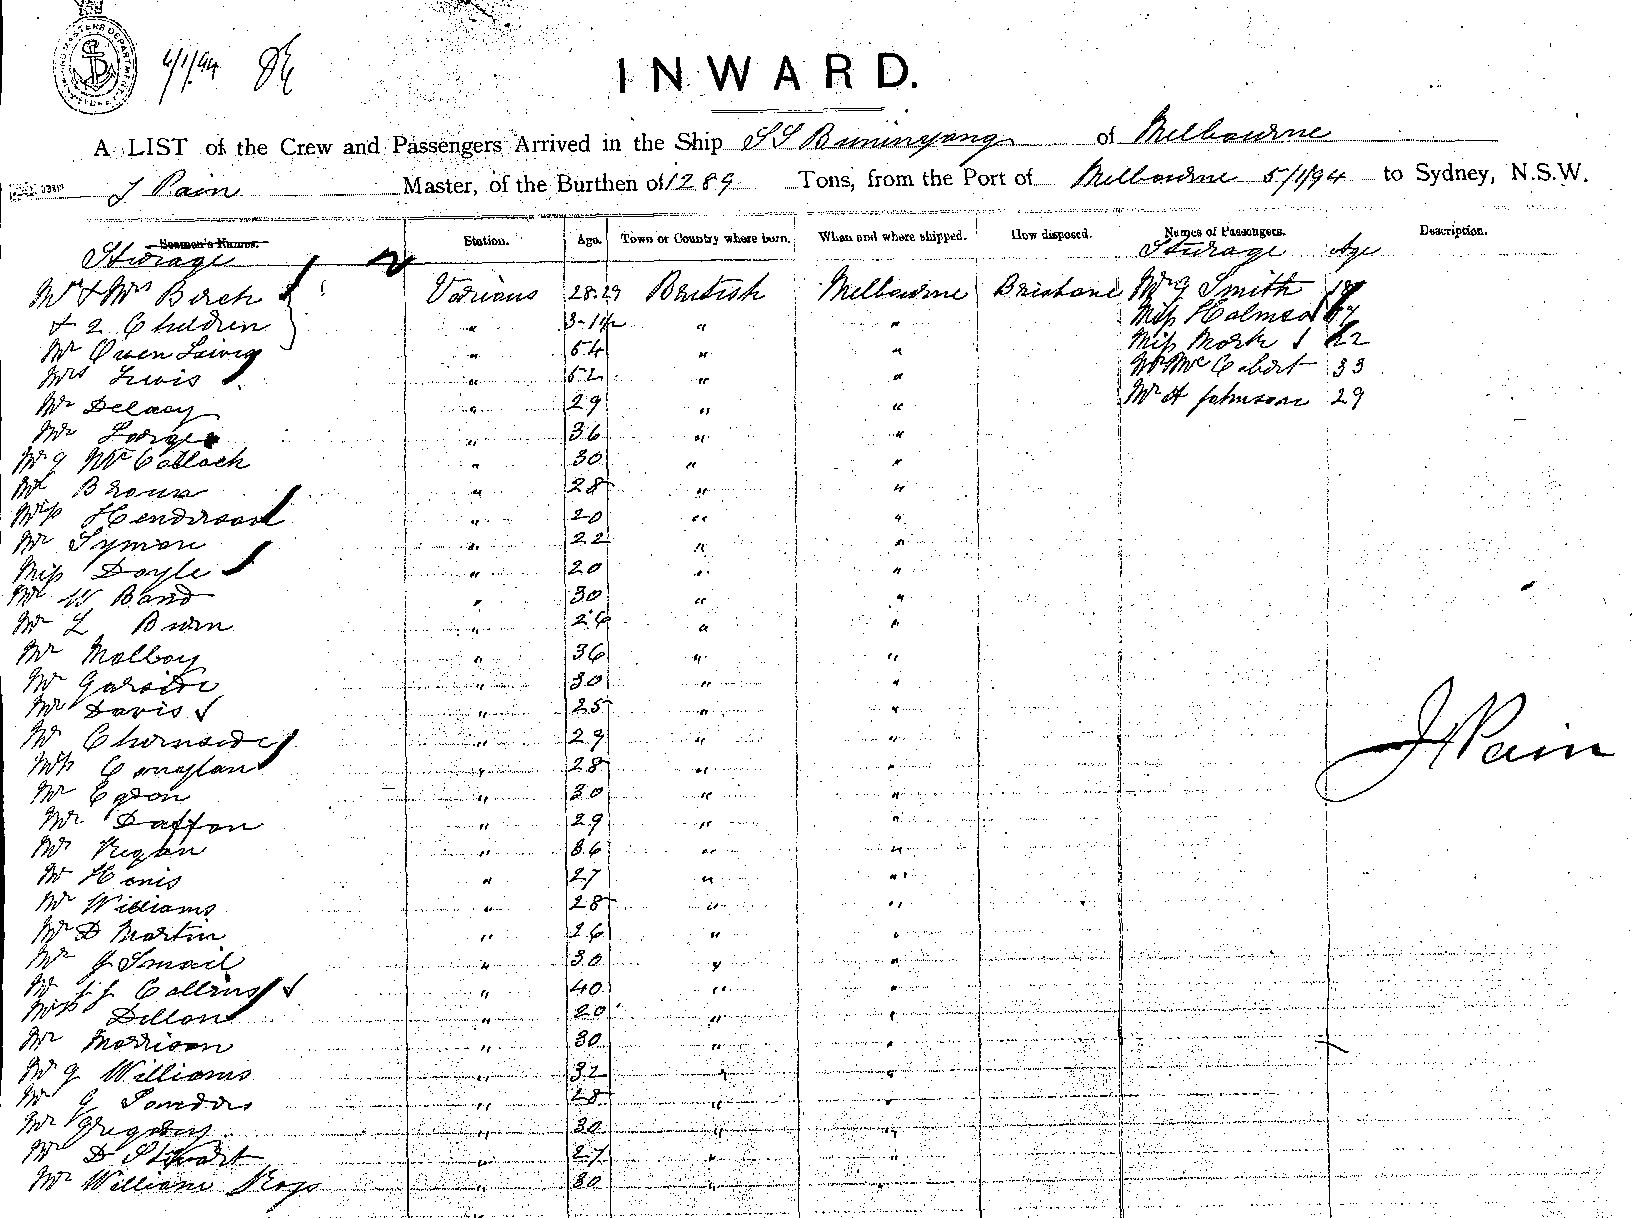 4/1/94
INWARD.
A LIST of the Crew and Passengers Arrived in the Ship SS Buninyong of Melbourne
J Pain Master, of the Burthen of 1289 Tons, from the Port of Melbourne 5/1/94 to Sydney, N.S.W.
Seamen's Names. Station. Age. Town or Country where born. When and where shipped. How disposed. Names of Passengers. Description.
Sturage Sturage Age
Mr & Mrs Birch Various 28.29 British Melbourne Brisbane Mr G Smith
& 2 Children " 3-1½ " " Miss
Mr Owen " 54 " " Miss Mork 22
Mrs Lewis " 52 " " 33
Mr Delacy " 29 " " Mr A Johnson 29
Mr " 36 " "
Mr G McCulloch " 30 " "
Mr Brown " 28 " "
Miss Henderson " 20 " "
Mr Symon " 22 " "
Miss Doyle " 20 " "
Mr W Band " 30 " "
Mr L " 26 " "
Mr Malboy " 36 " "
Mr Garside " 30 " "
Mr Davis " 25 " "
Mr Chirnside " 29 " "
Conaghan " 28 " "
Mr " 30 " "
Mr Daffon " 29 " "
Mr Regan " 36 " "
Mr " 27 " "
Mr Williams " 28 " "
Mr D Martin " 26 " "
Mr J Smail " 30 " "
Mr J J Collins " 40 " "
Miss Dillon " 20 " "
Mr Morrison " 30 " "
Mr G Williams " 32 " "
Mr G " 28 " "
Mr Gregory " 30 " "
Mr D Stewart " 27 " "
Mr William " 30 " "
J Pain